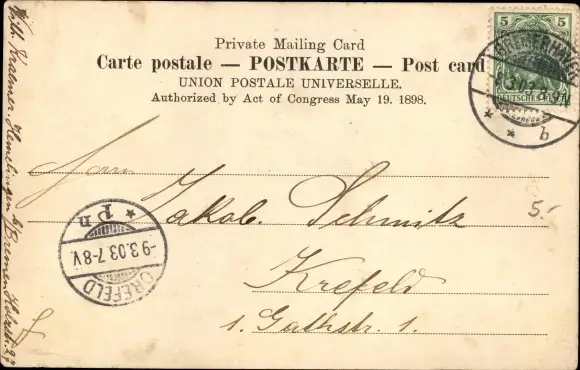 Private Mailing Card
Carte postale — POSTKARTE — Post card
UNION POSTALE UNIVERSELLE.
Authorized by Act of Congress May 19. 1898.
5 5
DEUTSCHES REICH
BREMERHAVEN
* * b
Herrn
Jakob Schmitz
Krefeld
1. Gathstr. 1.
5.-
CREFELD
-9.3.03.7-8V.
* P n
Wilh. Kraemer, Hemelingen b/Bremen